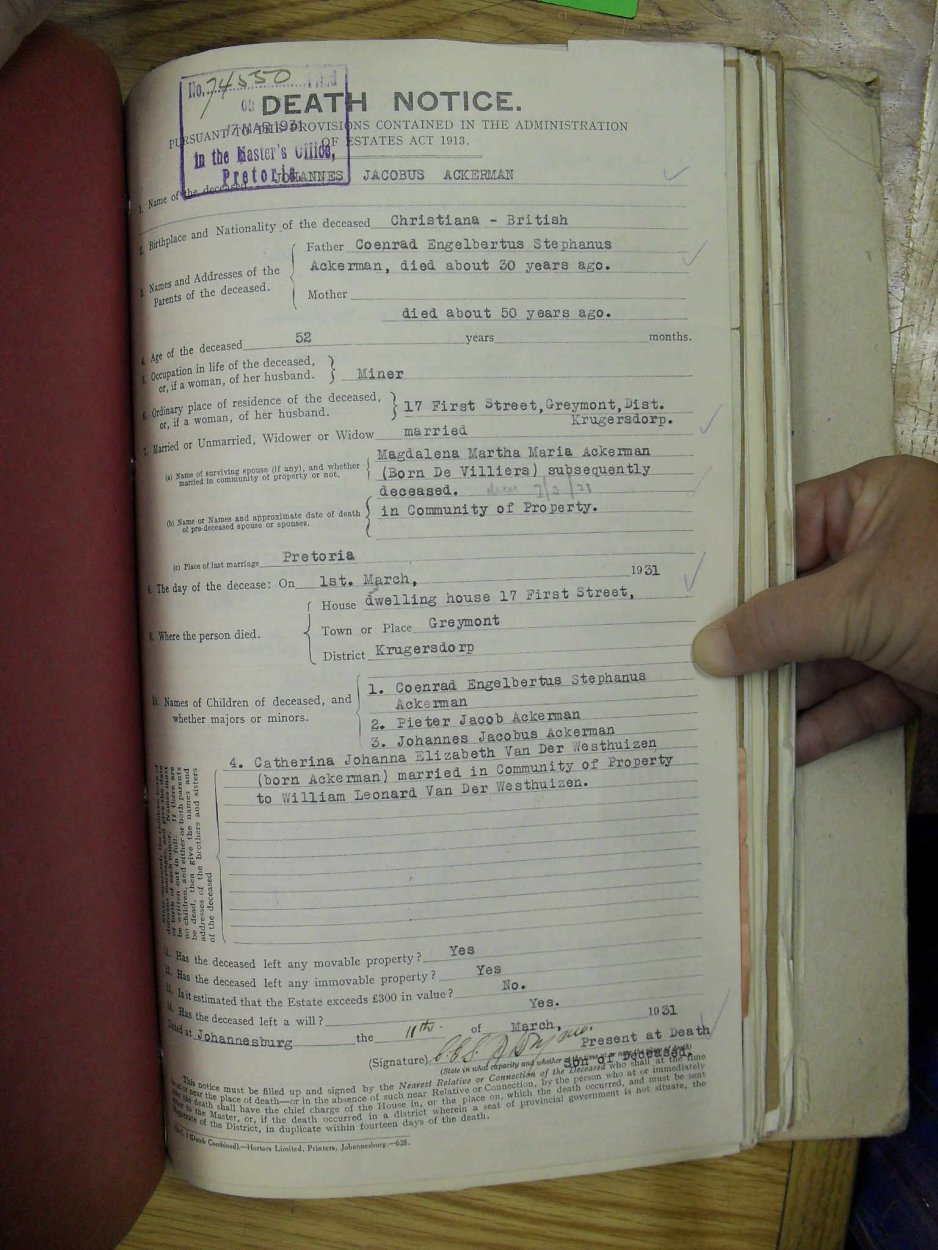 No. 74550 Filed
on
17 MAR 1931
in the Master's Office,
Pretoria.
DEATH NOTICE.
PURSUANT TO THE PROVISIONS CONTAINED IN THE ADMINISTRATION
OF ESTATES ACT 1913.
1. Name of the deceased JOHANNES JACOBUS ACKERMAN
2. Birthplace and Nationality of the deceased Christiana - British
3. Names and Addresses of the Parents of the deceased.
Father Coenrad Engelbertus Stephanus
Ackerman, died about 30 years ago.
Mother
died about 50 years ago.
4. Age of the deceased 52 years months.
5. Occupation in life of the deceased,
or, if a woman, of her husband. Miner
6. Ordinary place of residence of the deceased,
or, if a woman, of her husband. 17 First Street,Greymont,Dist.
Krugersdorp.
7. Married or Unmarried, Widower or Widow married
(a) Name of surviving spouse (if any), and whether
married in community of property or not.
Magdalena Martha Maria Ackerman
(Born De Villiers) subsequently
deceased.
(b) Name or Names and approximate date of death
of pre-deceased spouse or spouses.
in Community of Property.
(c) Place of last marriage Pretoria
8. The day of the decease: On 1st. March, 1931
9. Where the person died.
House dwelling house 17 First Street,
Town or Place Greymont
District Krugersdorp
10. Names of Children of deceased, and
whether majors or minors.
1. Coenrad Engelbertus Stephanus
Ackerman
2. Pieter Jacob Ackerman
3. Johannes Jacobus Ackerman
4. Catherina Johanna Elizabeth Van Der Westhuizen
(born Ackerman) married in Community of Property
to William Leonard Van Der Westhuizen.
be written out in full. If there are
no children, and either or both parents
be dead, then give the names and
addresses of the brothers and sisters
of the deceased
11. Has the deceased left any movable property? Yes
12. Has the deceased left any immovable property? Yes
13. Is it estimated that the Estate exceeds £300 in value? No.
14. Has the deceased left a will? Yes.
Dated at Johannesburg the 11th. of March, 1931
(Signature) Present at Death
Son of Deceased.
(State in what capacity and whether
This notice must be filled up and signed by the Nearest Relative or Connection of the Deceased who shall at the time
at or near the place of death—or in the absence of such near Relative or Connection, by the person who at or immediately
after the death shall have the chief charge of the House in, or the place on, which the death occurred, and must be sent
either to the Master, or, if the death occurred in a district wherein a seat of provincial government is not situate, the
Magistrate of the District, in duplicate within fourteen days of the death.
Combined).—Hortors Limited, Printers, Johannesburg.—628.